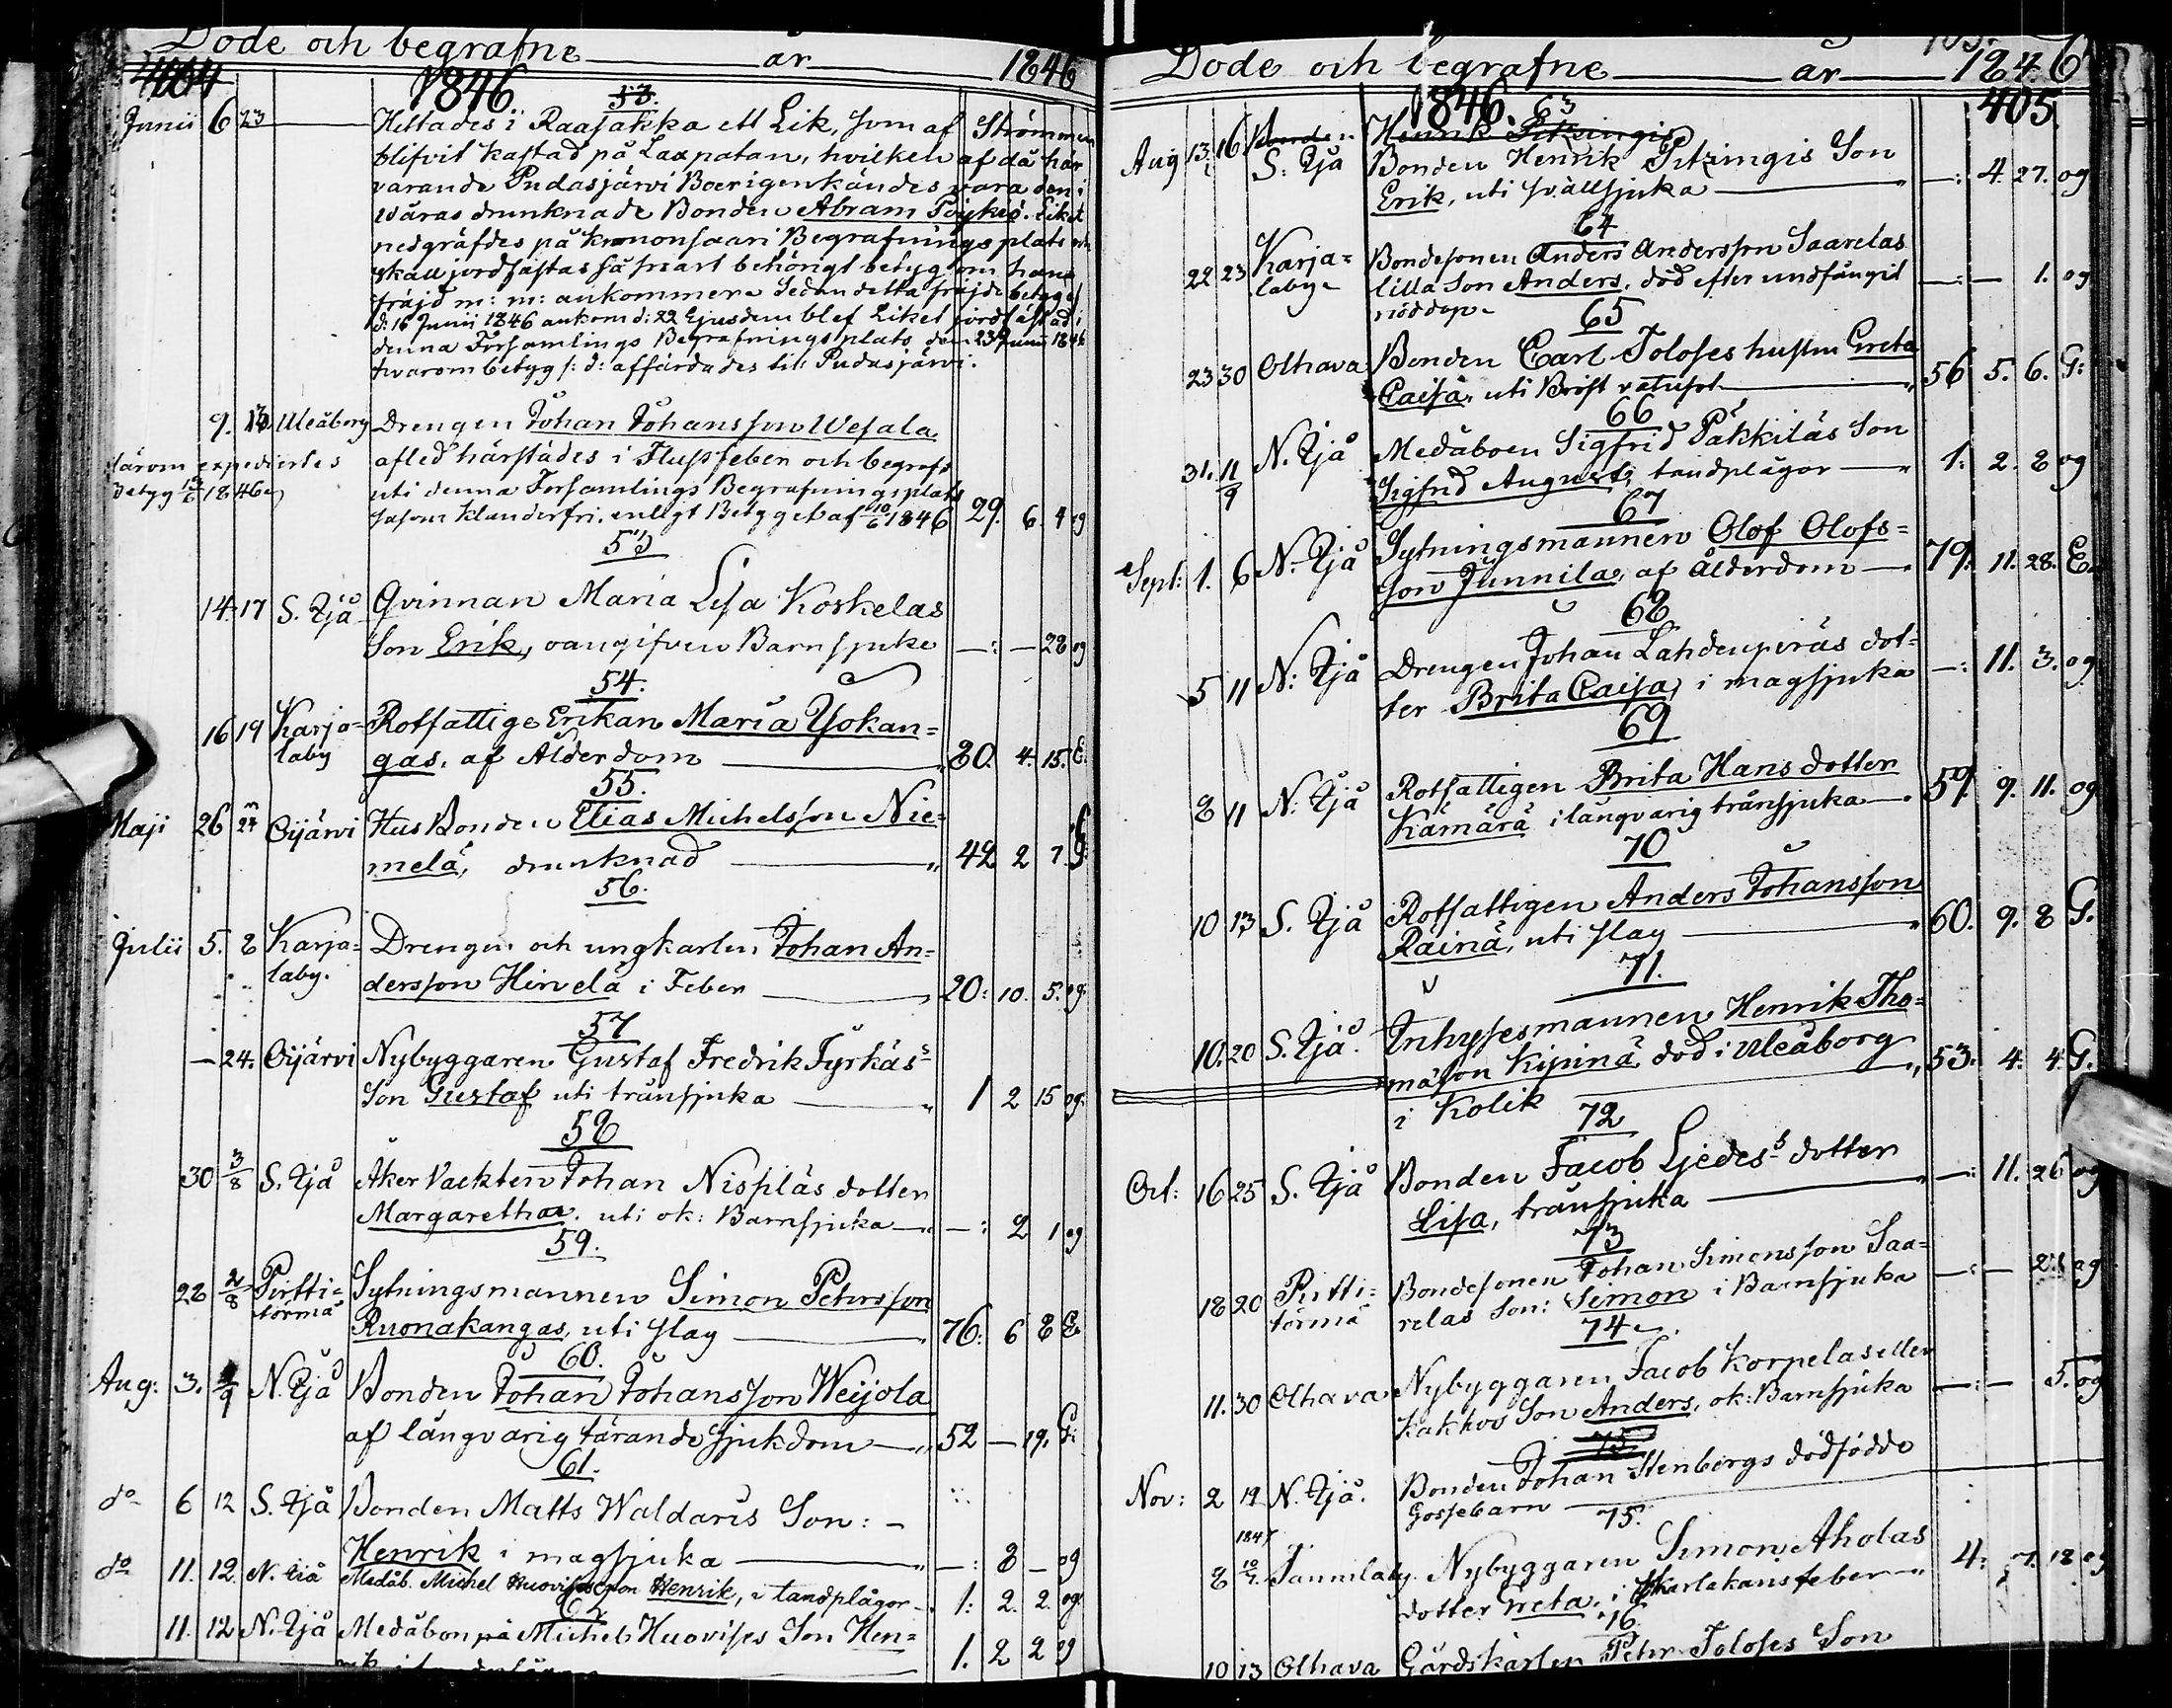 Döde och begrafne år 1846
404
1846
53.
Junii 6 23 Hittades i Raasakka ett Lik, som af Strömmen
blifvit kastad på Laxpatan, hvilken af då här
varande Pudasjärvi Boer igenkändes vara den i
våras drunknade Bonden Abram Liket
nedgräfdes på Kruunonsaari Begrafnings plats och
skall jordfästas så snart behörigt betyg om hans
fräjd m: m: ankommer. Sedan detta fräjdebetyg af
d: 16 Junii 1846 ankom d: 22 Ejusdem blef Liket jordfästad i
denna Församlings Begrafnings plats den 23 Junii 1846
hvarom betyg s: d: affärdades till Pudasjärvi.
9. 13. Uleåborg Drengen Johan Johansson Wesala,
därom expedierades afled härstädes i Flussfeber och begrafs
Betyg 13/6 1846 uti denna Församlings Begrafningsplats
såsom klanderfri, enligt Betyget af 10/6 1846 29. 6. 4 og
53
14. 17 S. Ijå Qvinnan Maria Lisa Koskelas
Son Erik, oangifven Barnsjuka —: — 28 og
54.
16 19 Karja= Rotfattige Enkan Maria Yjokan=
laby gas, af Ålderdom 80. 4. 15. E.
55.
Maji 26 Oijärvi Husbonden Elias Michelsson Nie=
melä, drunknad 42 2 7. G.
56.
Julii 5. 8 Karja= Drengen och ungkarlen Johan An=
laby. dersson Hirvelä i Feber 20: 10. 5. og.
57
— 24. Oijärvi Nybyggaren Gustaf Fredrik Tyrkäs
Son Gustaf uti trånsjuka 1 2 15 og.
58
30 3/8 S. Ijå Åkervackten Johan Nispläs dotter
Margaretha. uti ok: Barnsjuka —: 2 1 og
59.
28 2/8 Pirtti= Sytningsmannen Simon Petersson
törmä Ruonakangas, uti slag 76: 6 8 E.
60.
Aug: 3. 9 N. Ijå Bonden Johan Johansson Weijola
af långvarig tärande Sjukdom 52 — 19. G.
61.
do 6 12 S. Ijå Bonden Matts Waldaris Son: —
Henrik i magsjuka —: 8 — og
do 11. 12. N. Ijå Medåb. Michel Huovises son Henrik, i tandplågor 1: 2. 2. og.
62
11. 12 N. Ijå Medåbon på Michel Huovises Son Hen= 1. 2 2 og
Döde och begrafne år 1846
405
1846.
63
Bonden Henrik Pitzingis
Aug 13. 16 S. Ijå Bonden Henrik Pitzingis Son
Erik, uti svällsjuka —: 4. 27. og
64
22 23 Karja= Bondesonen Anders Andersson Saarelas
laby lilla Son Anders, död efter undfångit —: — 1. og
nöddop.
65
23 30 Olhava Bonden Carl Toloses hustru Greta
Caisa, uti Bröst vatusot 56 5. 6. G:
66
31. 11/9 N. Ijå Medåboen Sigfrid Pakkiläs Son
Sigfrid August, tandplågor 1: 2. 8 og
67
Sept: 1. 6 N. Ijå Sytningsmannen Olof Olofs=
son Junnila, af Ålderdom 79. 11. 28. E.
68
5 11 N: Ijå Drengen Johan Lahdenperäs dot=
ter Brita Caisa, i magsjuka —: 11. 3. og
69
8 11 N: Ijå Rotfattigen Brita Hans dotter
Kämärä i långvarig trånsjuka 59. 9. 11. og
70
10 13 S. Ijå Rotfattigen Anders Johansson
Räinä, uti slag 60. 9. 8 G.
71.
10. 20 S. Ijå. Inhysesmannen Henrik Tho=
mäson Kipinä, död i Uleåborg 53. 4. 4. G.
i Kolik
72
Oct: 16 25 S. Ijå Bonden Jacob Liedes dotter
Lisa, trånsjuka —: 11. 26 og
73
18 20 Pirtti= Bondesonen Johan Simonsson Saa=
törmä relas Son: Simon i Barnsjuka —: — 21 og
74
11. 30 Olhava Nybyggaren Jacob Korpelas eller
Kakkos Son Anders, ok: Barnsjuka —: — 5. og
75
Nov: 2 19 N. Ijå. Bonden Johan Stenbergs dödfödde
Gossebarn
75.
1847
8 Tannilaby. Nybyggaren Simon Aholas
dotter Greta, i Skarlakansfeber 4: 7. 18 og
76.
10 13 Olhava Gårdskarlen Pehr Toloses Son